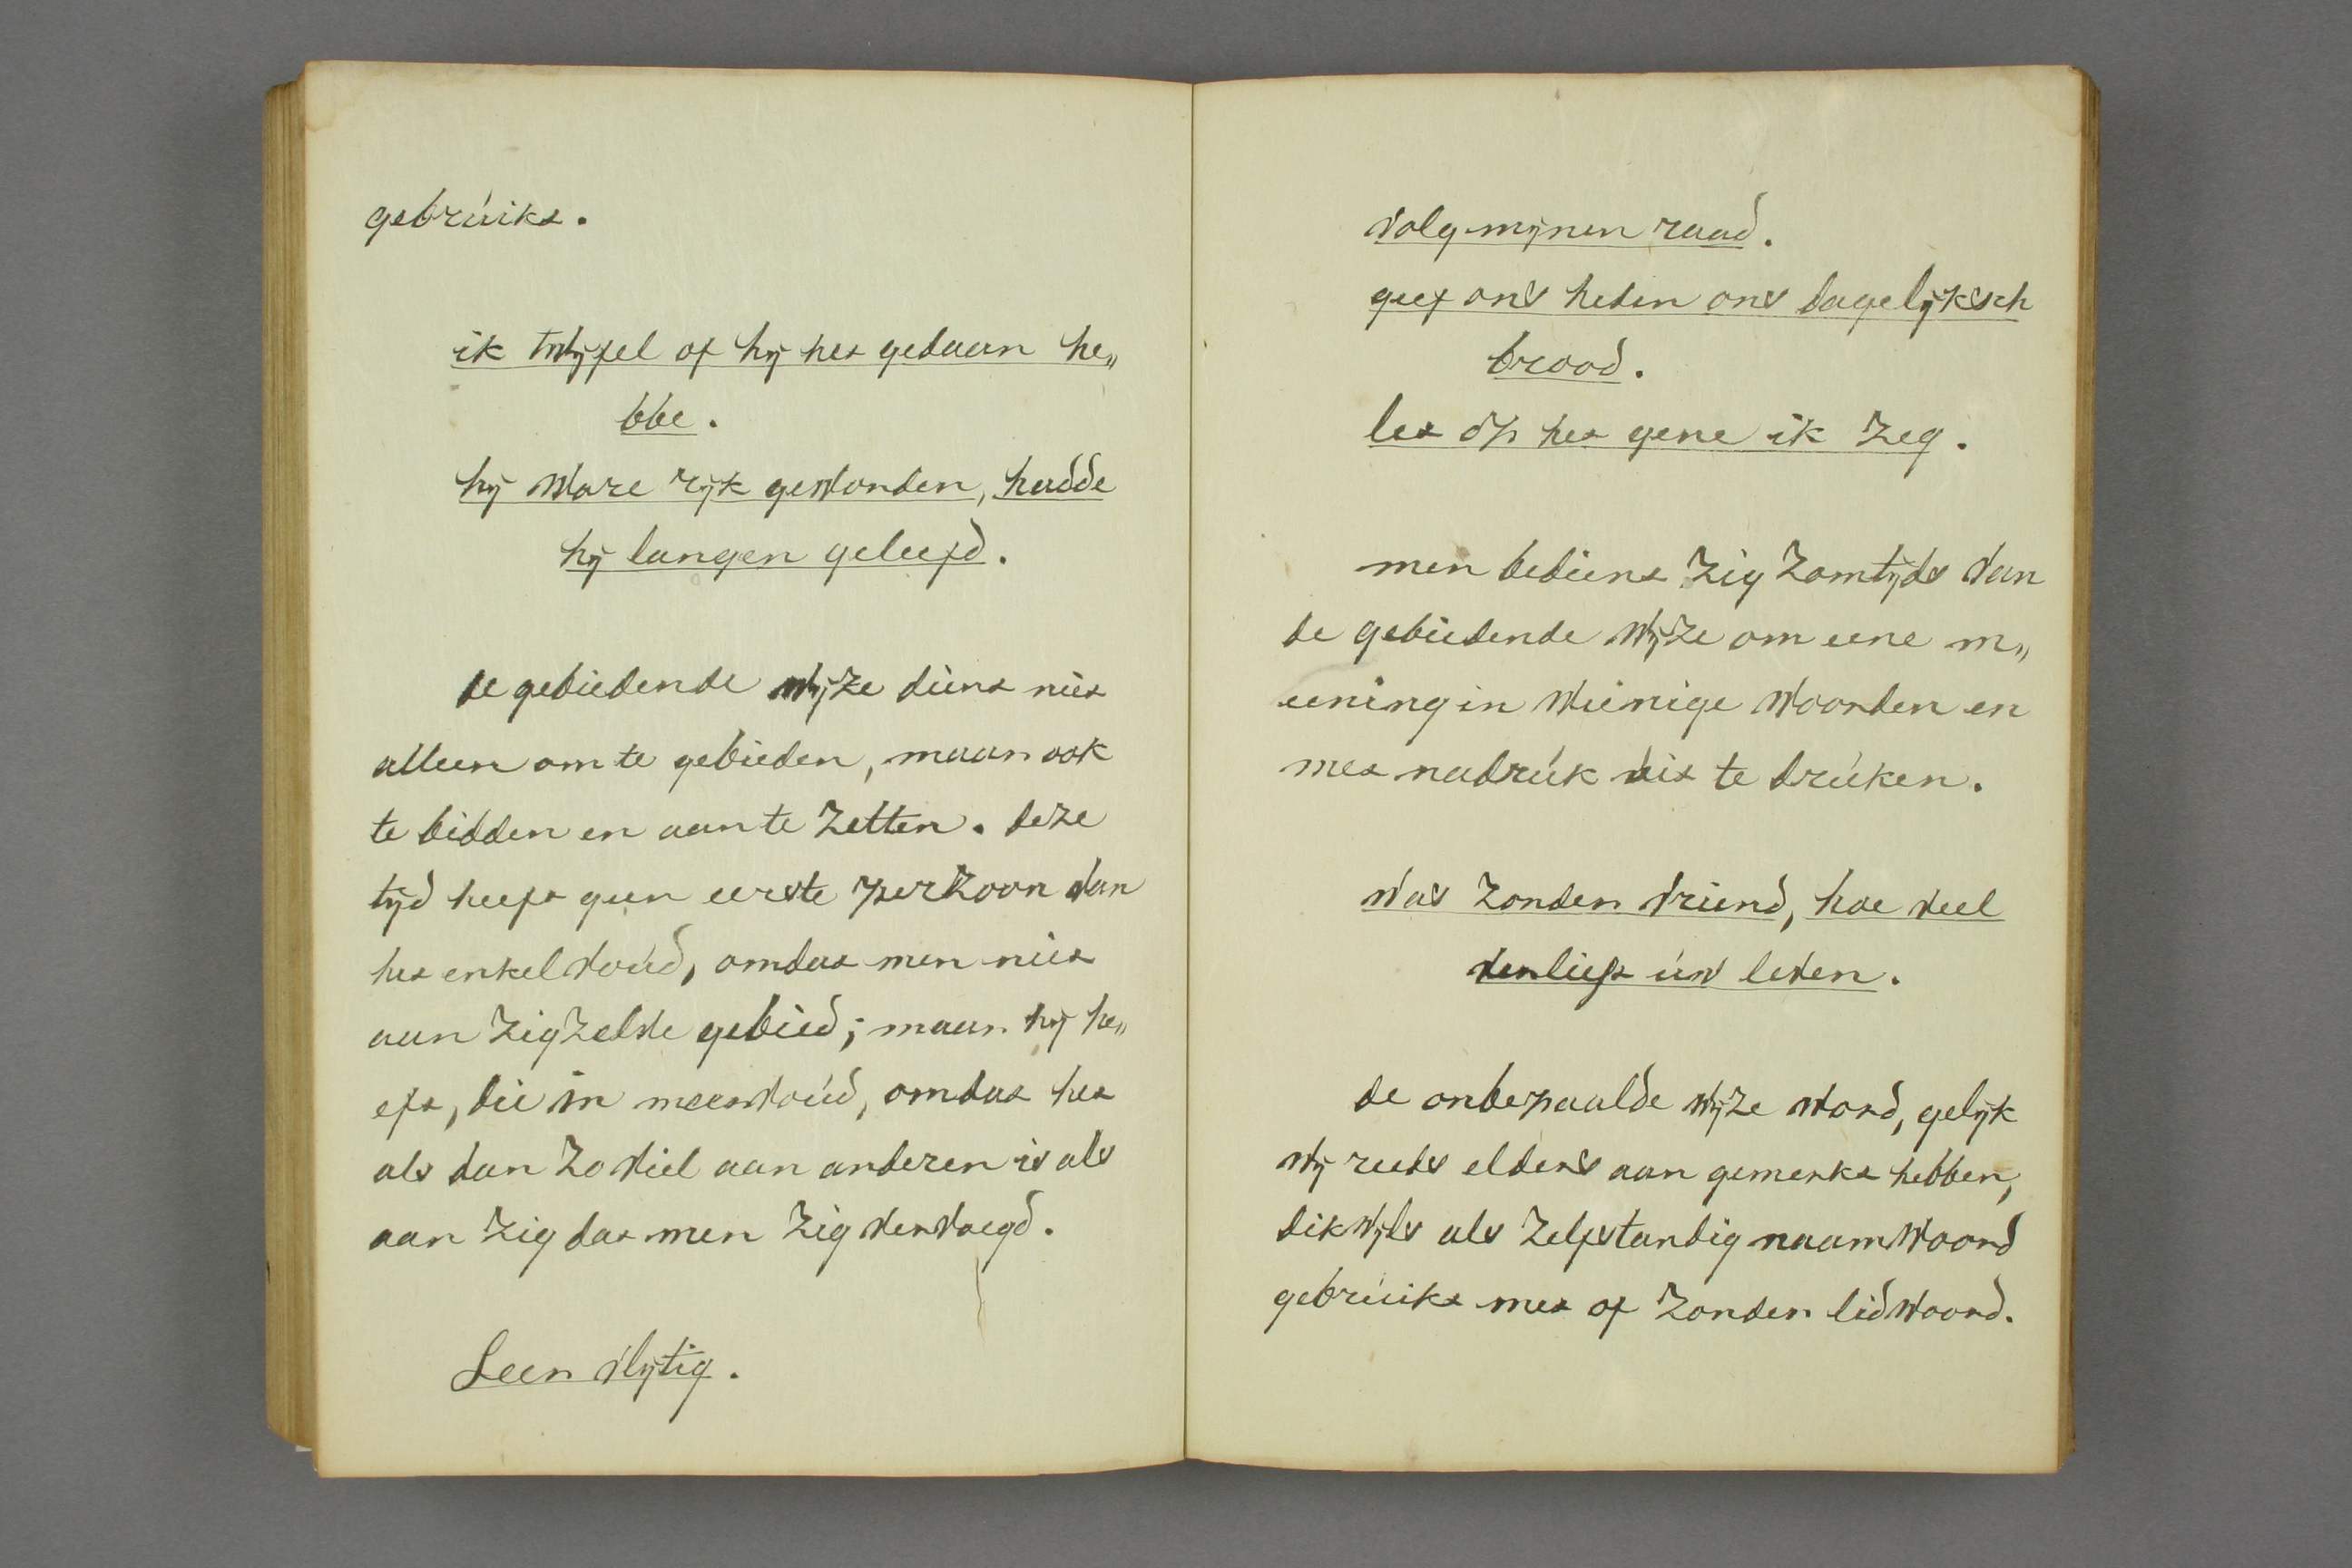 gebrúikt.
ik twijfel of hij het gedaan he„
bbe.
hij ware rijk geworden, hadde
hij langer geleefd.
de gebiedende wijze dient niet
alleen om te gebieden, maar ook
te bidden en aan te zetten. deze
tijd heeft geen eerste perzoon van
het enkelvoúd, omdat men niet
aan zigzelve gebied; maar hij he„
eft, die in meervoúd, omdat het
als dan zo viel aan anderen is als
aan zig dat men zig vervoegd.
Leer vlijtig.
volg mijnen raad.
geef ons heden ons dagelijksch
brood.
let op het gene ik zeg.
men bedient zig zomtijds van
de gebiedende wijze om eene m„
eening in wienige woorden en
met nadrúk úit te drúken.
vas zonder vriend, hoe veel
verliest úw leven.
de onbepaalde wijze word, gelijk
wij reeds elders aan gemerkt hebben,
dikwijls als zelfstandig naamwoord
gebrúikt met of zonder lidwoord.